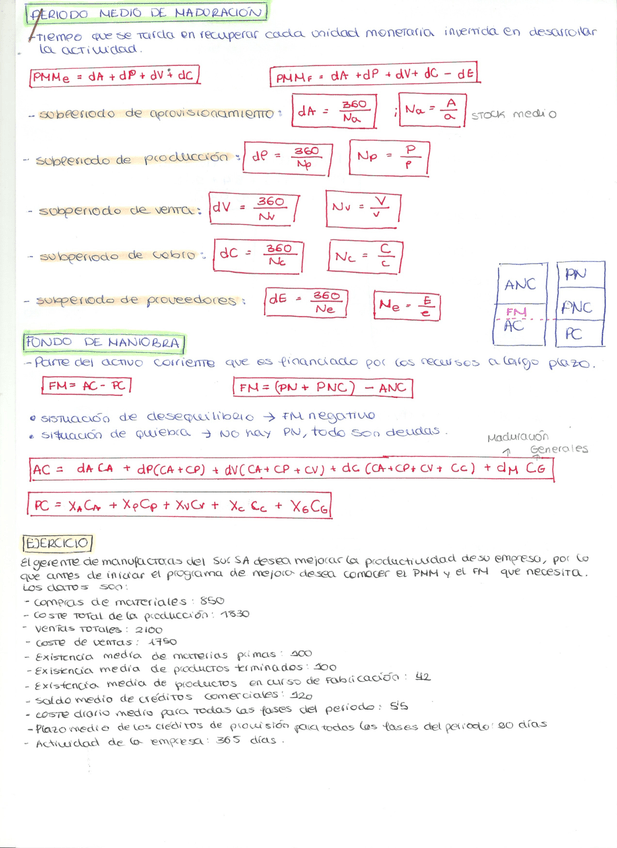 PERIODO MEDIO DE MADURACIÓN
-Tiempo que se tarda en recuperar cada unidad monetaria invertida en desarrollar
la actividad.
PMMe = dA + dP + dV + dC
PMMF = dA + dP + dV + dC - dE
- subperiodo de aprovisionamiento: dA = 360/Na ; Na = A/a STOCK medio
- subperiodo de producción: dP = 360/Np Np = P/p
- subperiodo de venta: dV = 360/Nv Nv = V/v
- subperiodo de cobro: dC = 360/Nc Nc = C/c
- subperiodo de proveedores: dE = 360/Ne Ne = E/e
ANC PN
FM PNC
AC PC
FONDO DE MANIOBRA
- Parte del activo corriente que es financiado por los recursos a largo plazo.
FM = AC - PC
FM = (PN + PNC) - ANC
• sistuación de desequilibrio → FM negativo
• situación de quiebra → No hay PN, todo son deudas.
Maduración
↑ Generales
AC = dA CA + dP(CA+CP) + dV(CA+CP+CV) + dC (CA+CP+CV+CC) + dM CG
PC = XACA + XPCP + XVCV + XC CC + XGCG
EJERCICIO
El gerente de manufacturas del Sur SA desea mejorar la productividad de su empresa, por lo
que antes de iniciar el programa de mejora desea conocer el PMM y el FM que necesita.
Los datos son:
- Compras de materiales: 850
- Coste total de la producción: 1530
- Ventas totales: 2100
- Coste de ventas: 1750
- Existencia media de materias primas: 100
- Existencia media de productos terminados: 100
- Existencia media de productos en curso de fabricación: 42
- Saldo medio de créditos comerciales: 120
- Coste diario medio para todas las fases del periodo: 5'5
- Plazo medio de los créditos de provisión para todas las fases del periodo: 90 días
- Actividad de la empresa: 365 días.